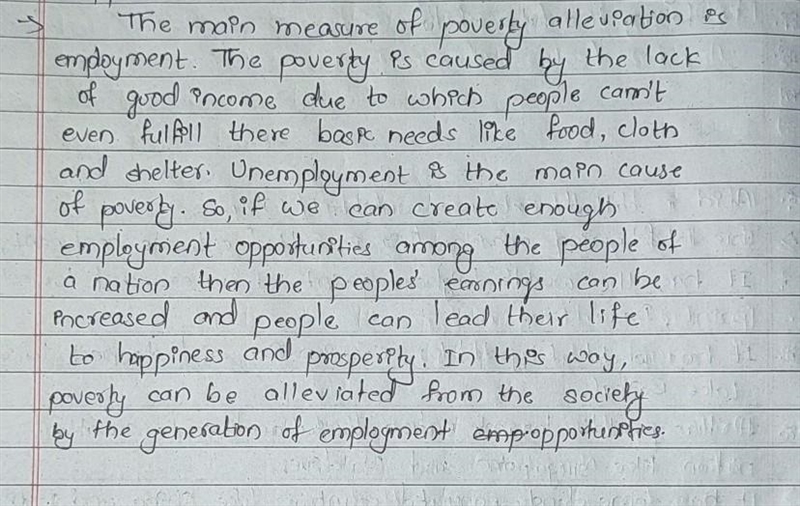 → The main measure of poverty alleviation is
employment. The poverty is caused by the lack
of good income due to which people cann't
even fulfill there basic needs like food, cloth
and shelter. Unemployment is the main cause
of poverty. So, if we can create enough
employment opportunities among the people of
a nation then the peoples' earnings can be
increased and people can lead their life
to happiness and prosperity. In this way,
poverty can be alleviated from the society
by the generation of employment emp opportunities.